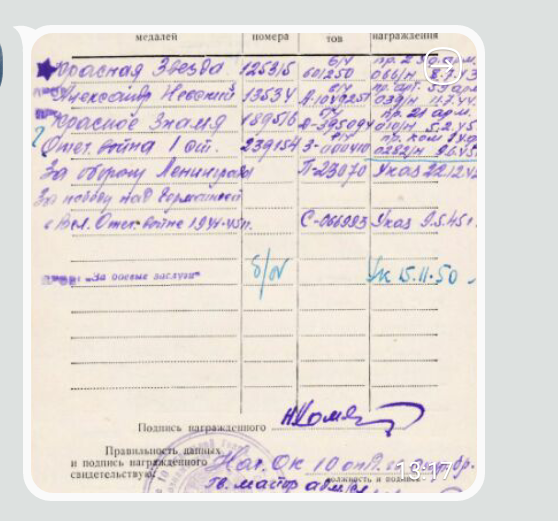 медалей номера тов награждения
Красная Звезда 125315 б/ч 601250 пр. 23 арм. 066/н 8.7.43
орден Александр Невский 13534 б/ч А-1049251 039/н 11.7.44
орден Красное Знамя 189516 б/ч пр. 21 арм. 010/н 5.2.45
Отеч. война I ст. 239154 З-000410 0282/н 9.6.45
За оборону Ленинграда П-23070 Указ 22.12.42
За победу над Германией
в Вел. Отеч. войне 1941-45гг. С-066993 Указ 9.5.45г.
орден „За боевые заслуги" б/н Ук 15.11.50
Подпись награжденного
Правильность данных
и подпись награжденного
свидетельствую Нач. ОК
гв. майор адм/сл
должность и подпись
13:17